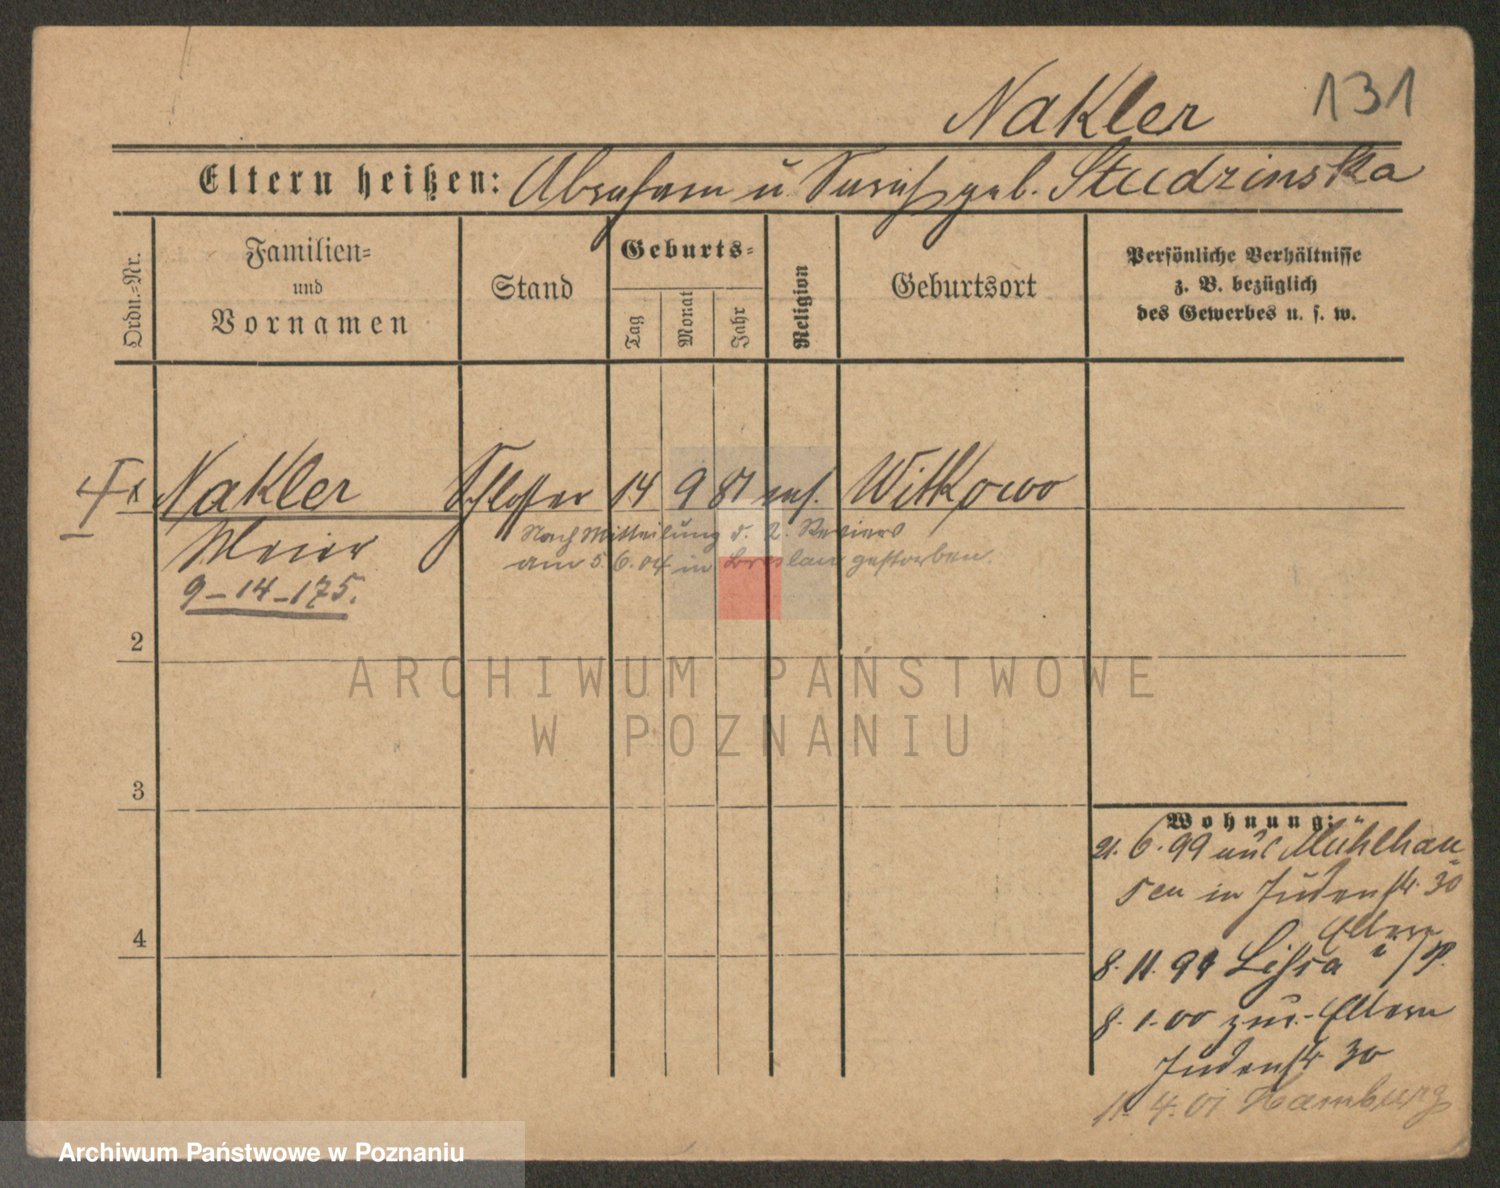 131
Nakler
Eltern heißen: Abraham u Sarah geb. Studzinska
Ordn.-Nr.
Familien-
und
Vornamen
Stand
Geburts-
Tag
Monat
Jahr
Religion
Geburtsort
Persönliche Verhältnisse
z. B. bezüglich
des Gewerbes u. s. w.
Nakler Schlosser 14 9 81 mos. Witkowo
Meier
Nach Mitteilung d. 2. Reviers
am 5.6.04 in Breslau gestorben.
9-14-175.
2
3
4
Wohnung:
21.6.99 aus Mühlhau
sen in Judenstr. 30
Eltern
8.11.99 Lissa i/P.
8.1.00 zur. Eltern
Judenstr 30
11.4.01 Hamburg
ARCHIWUM PAŃSTWOWE
W POZNANIU
Archiwum Państwowe w Poznaniu